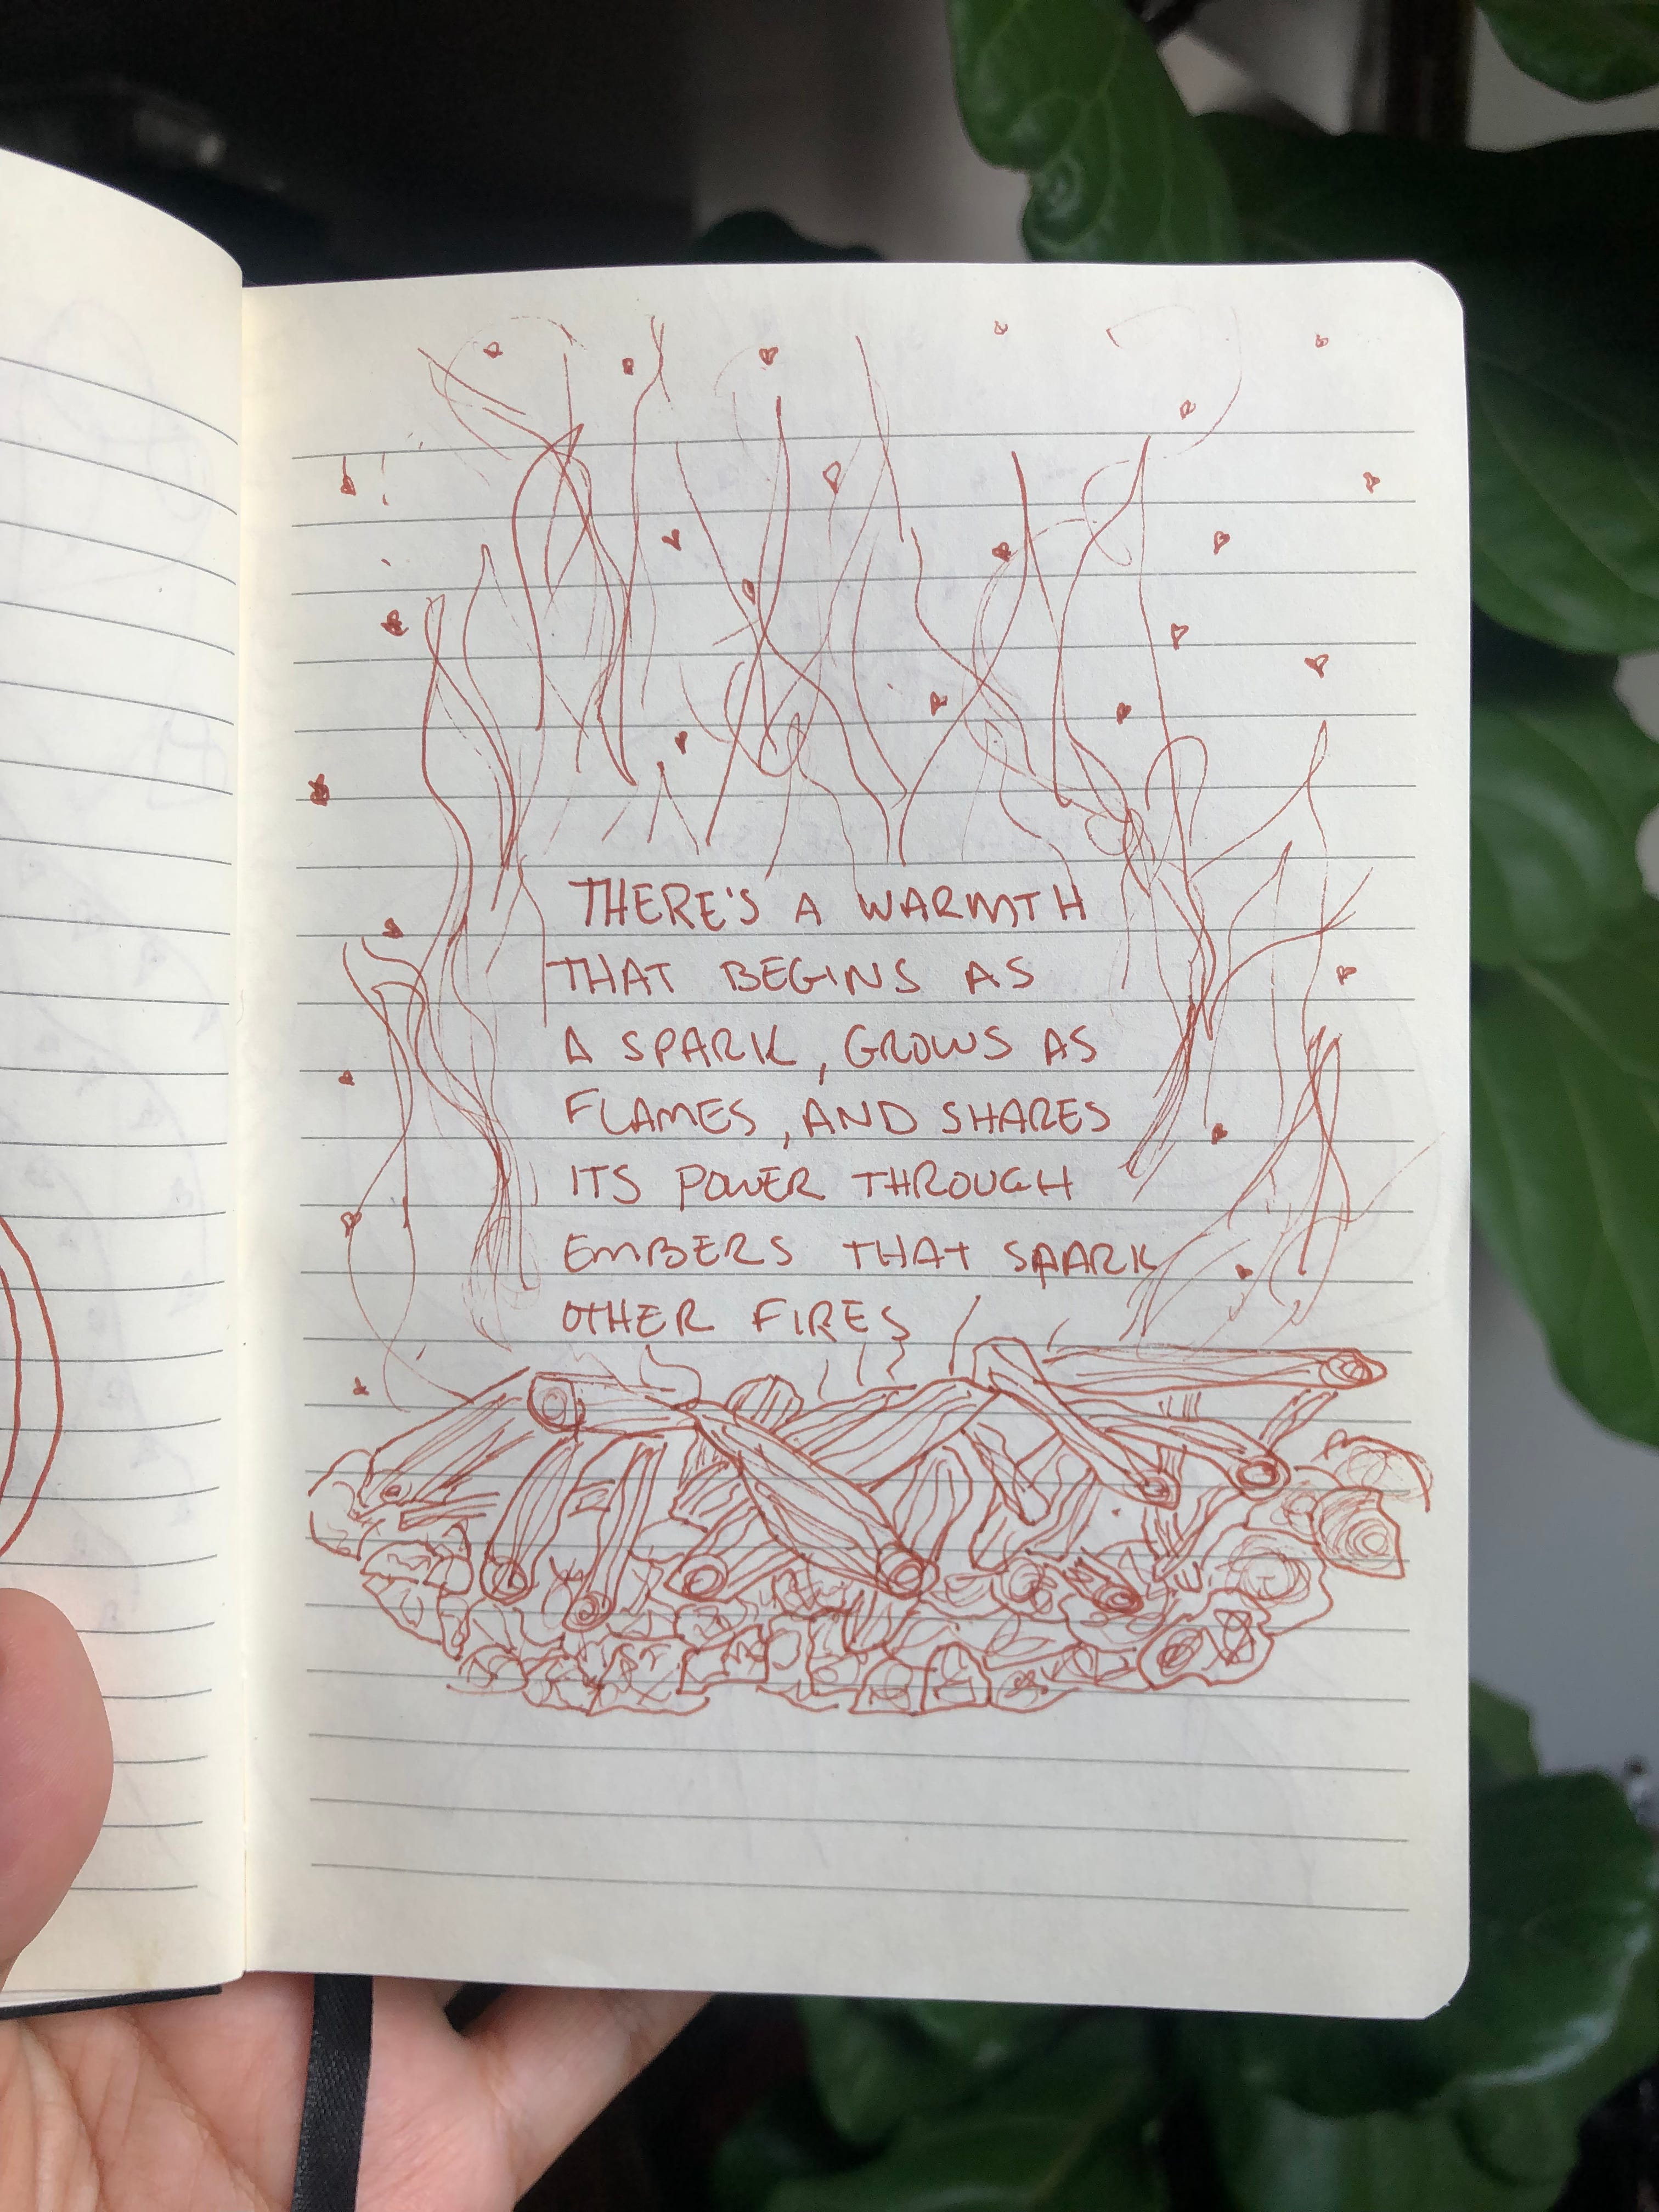 THERE'S A WARMTH
THAT BEGINS AS
A SPARK, GROWS AS
FLAMES, AND SHARES
ITS POWER THROUGH
EMBERS THAT SPARK
OTHER FIRES